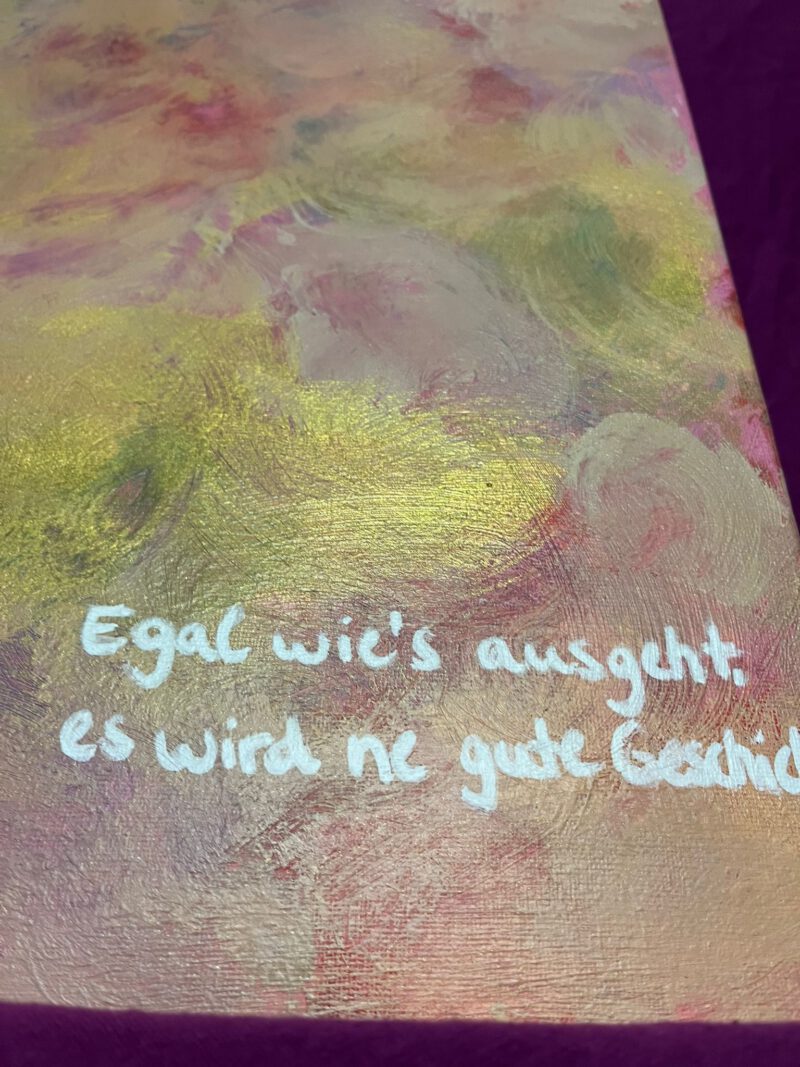 Egal wie's ausgeht,
es wird ne gute Geschic